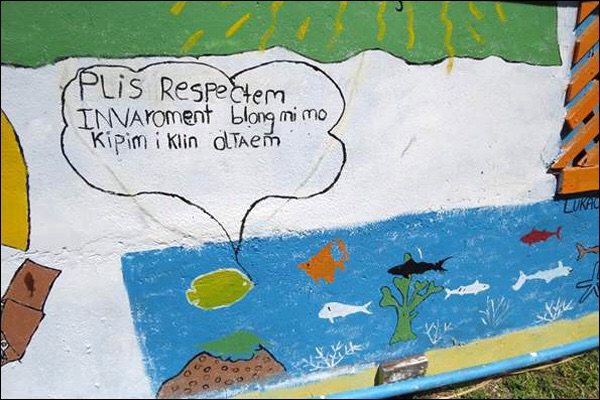 PLis Respectem
INVAroment blong mi mo
Kipim i Klin olTAem